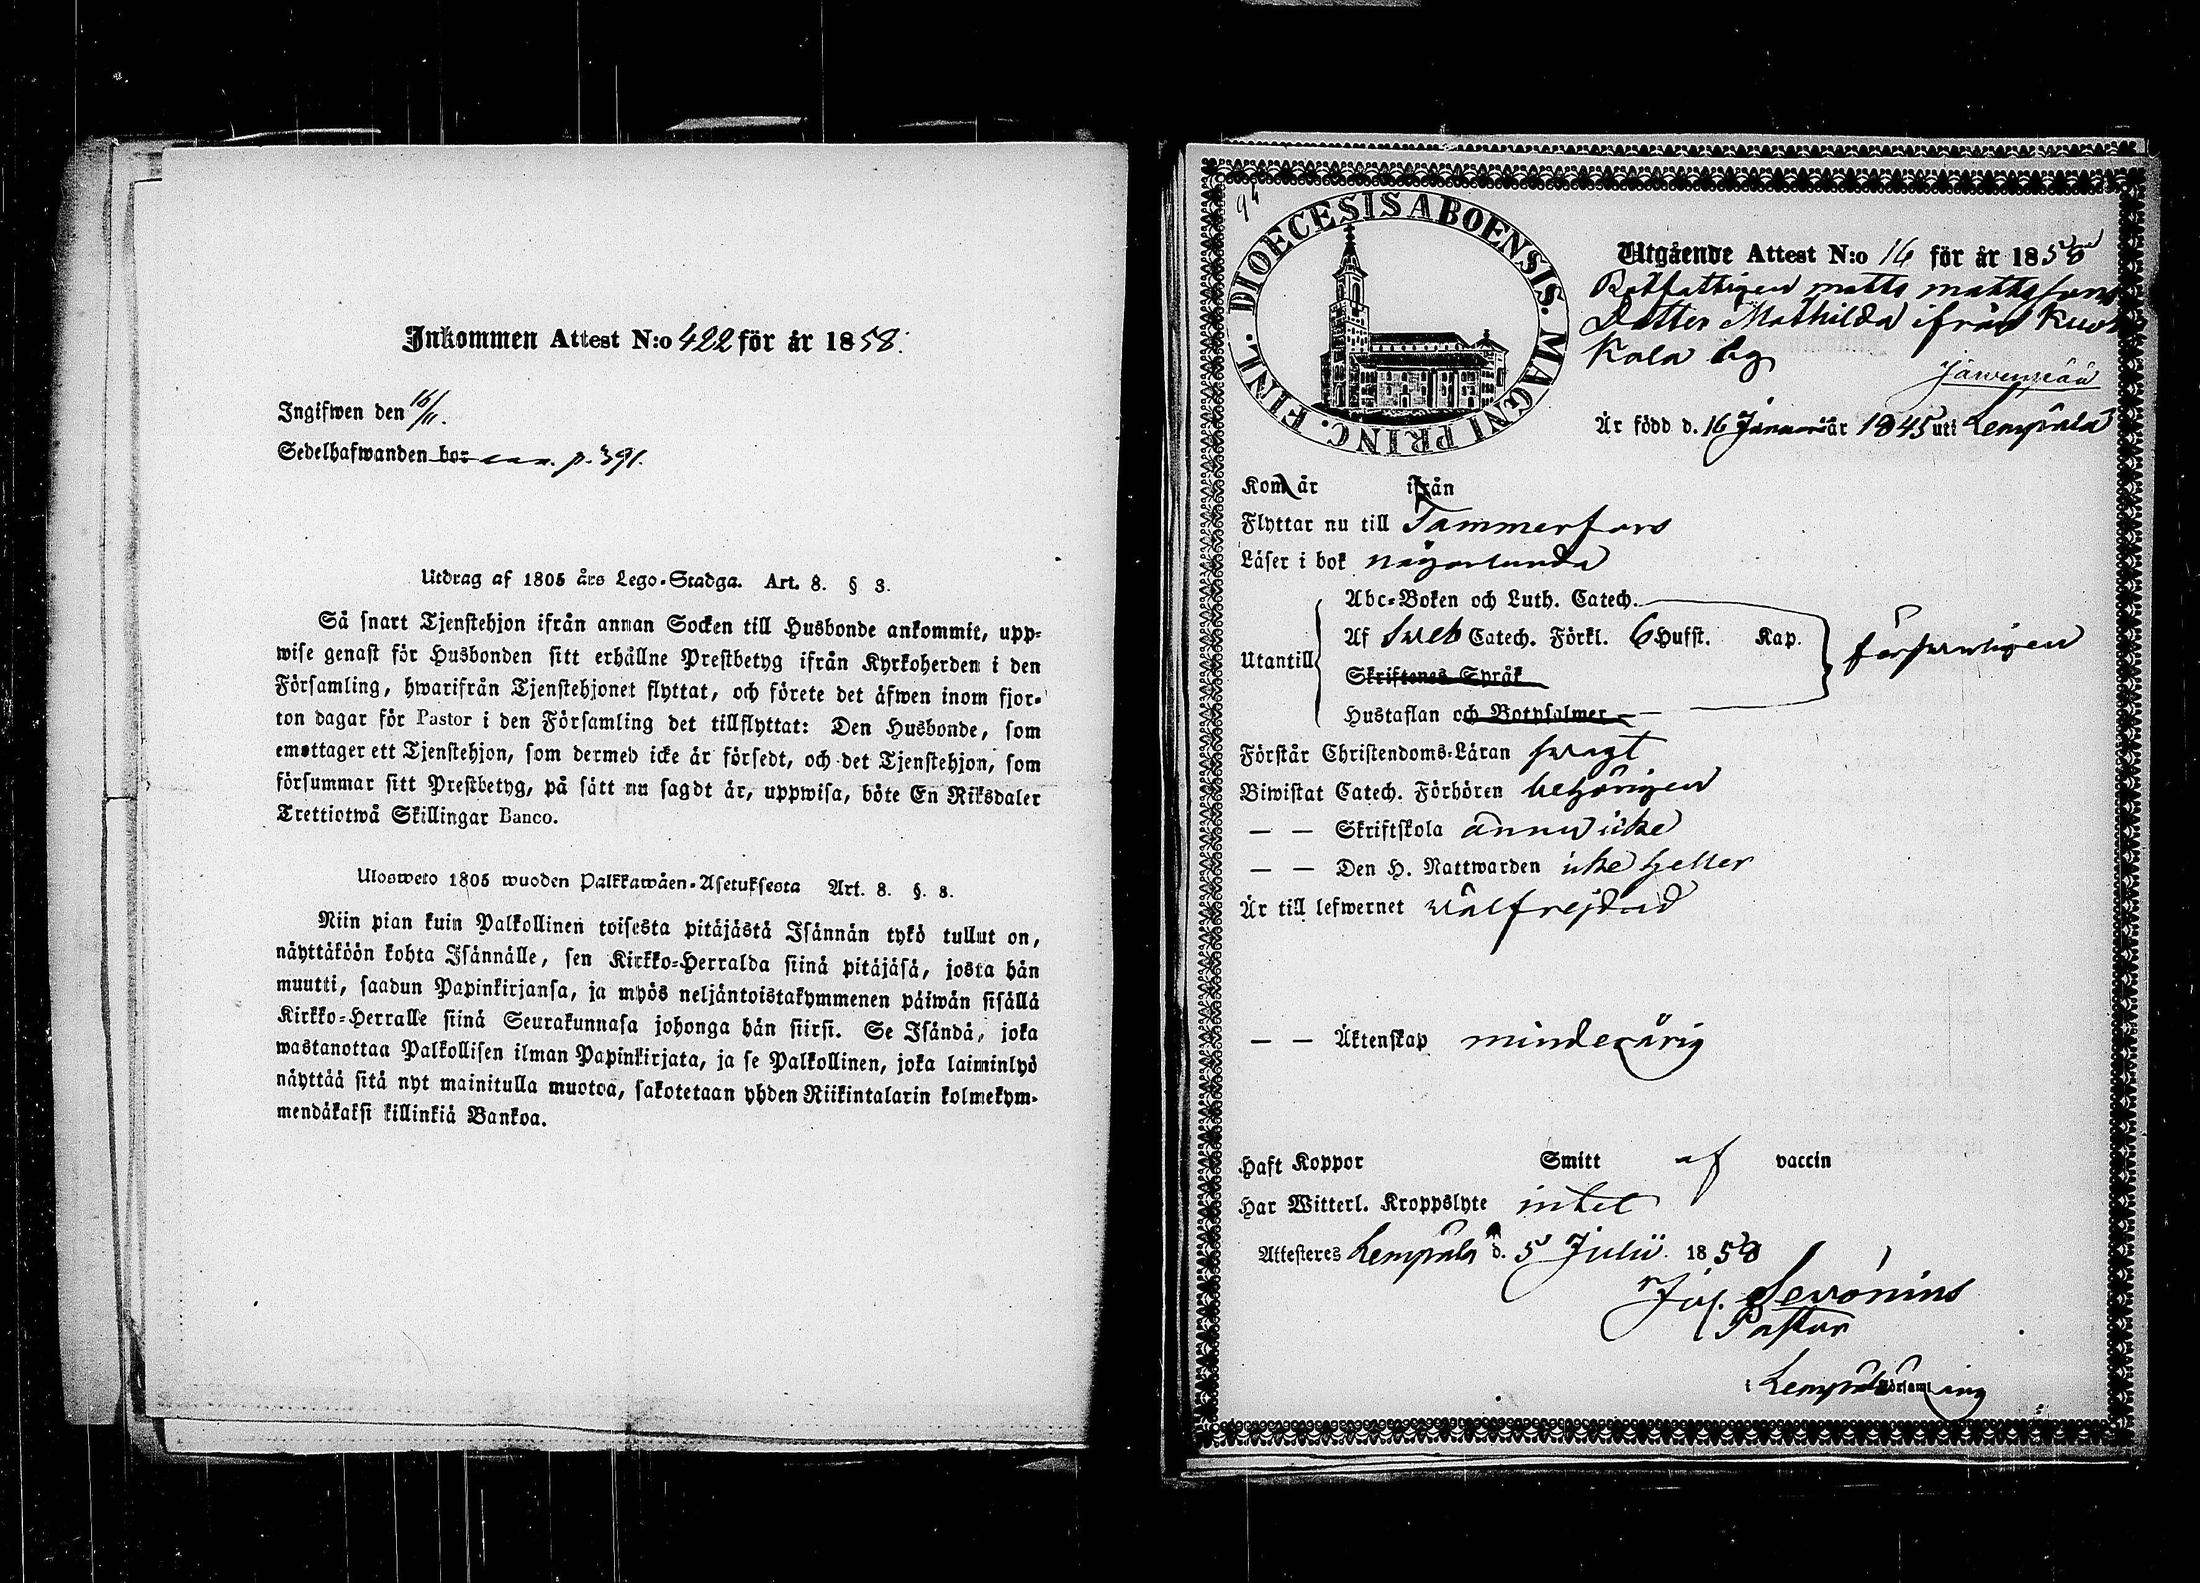 Inkommen Attest N:o 422 för år 1858.
Ingifwen den 16/11.
Sedelhafwanden bor p. 391.
Utdrag af 1805 års Lego-Stadga. Art. 8. § 3.
Så snart Tjenstehjon ifrån annan Socken till Husbonde ankommit, upp-
wise genast för Husbonden sitt erhållne Prestbetyg ifrån Kyrkoherden i den
Församling, hwarifrån Tjenstehjonet flyttat, och förete det äfwen inom fjor-
ton dagar för Pastor i den Församling det tillflyttat: Den Husbonde, som
emottager ett Tjenstehjon, som dermed icke är försedt, och det Tjenstehjon, som
försummar sitt Prestbetyg, på sätt nu sagdt är, uppwisa, böte En Riksdaler
Trettiotwå Skillingar Banco.
Ulosweto 1805 wuoden Palkkawäen-Asetuksesta Art. 8. §. 8.
Niin pian kuin Palkollinen toisesta pitäjästä Isännän tykö tullut on,
näyttäköön kohta Isännälle, sen Kirkko-Herralda siinä pitäjäsä, josta hän
muutti, saadun Papinkirjansa, ja myös neljäntoistakymmenen päiwän sisällä
Kirkko-Herralle siinä Seurakunnasa johonga hän siirsi. Se Isändä, joka
wastanottaa Palkollisen ilman Papinkirjata, ja se Palkollinen, joka laiminlyö
näyttää sitä nyt mainitulla muotoa, sakotetaan yhden Riikintalarin kolmekym-
mendäkaksi killinkiä Bankoa.
94
DIOECESIS ABOENSIS. MAGNI PRINC. FINL.
Utgående Attest N:o 16 för år 1858
matts mattsson
Dotter Mathilda ifrån
Kala by
Järvenpää
Är född d. 16 Januari år 1845 uti Lempäla
Kom år ifrån
Flyttar nu till Tammerfors
Läser i bok någorlunda
Utantill
Abc-Boken och Luth. Catech.
Af Sveb Catech. Förkl. 6 Hufst. Kap.
Skriftenes Språk
Hustaflan och Botpsalmer
försvarligen
Förstår Christendoms-Läran svagt
Biwistat Catech. Förhören behörigen
— — Skriftskola ännu icke
— — Den H. Nattwarden icke heller
Är till lefwernet välfrejdad
— — Äktenskap minderårig
Haft Koppor Smitt af vaccin
Har Witterl. Kroppslyte intet
Attesteres Lempäla d. 5 Julii 1858
Jos. Sevonius
Pastor
i Lempäla Församling